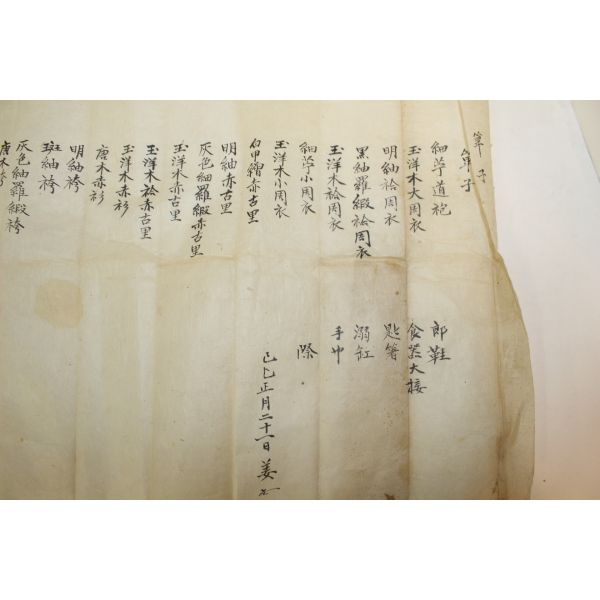 單子
單子
細苧道袍
玉洋木大周衣
明紬袷周衣
黑紬羅緞袷周衣
玉洋木袷周衣
細苧小周衣
玉洋木小周衣
白甲繒赤古里
明紬赤古里
灰色紬羅緞赤古里
玉洋木赤古里
玉洋木袷赤古里
玉洋木赤衫
唐木赤衫
明紬袴
斑紬袴
灰色紬羅緞袴
唐木袴
郎鞋
食器大接
匙箸
溺缸
手巾
際
己巳正月二十一日 姜